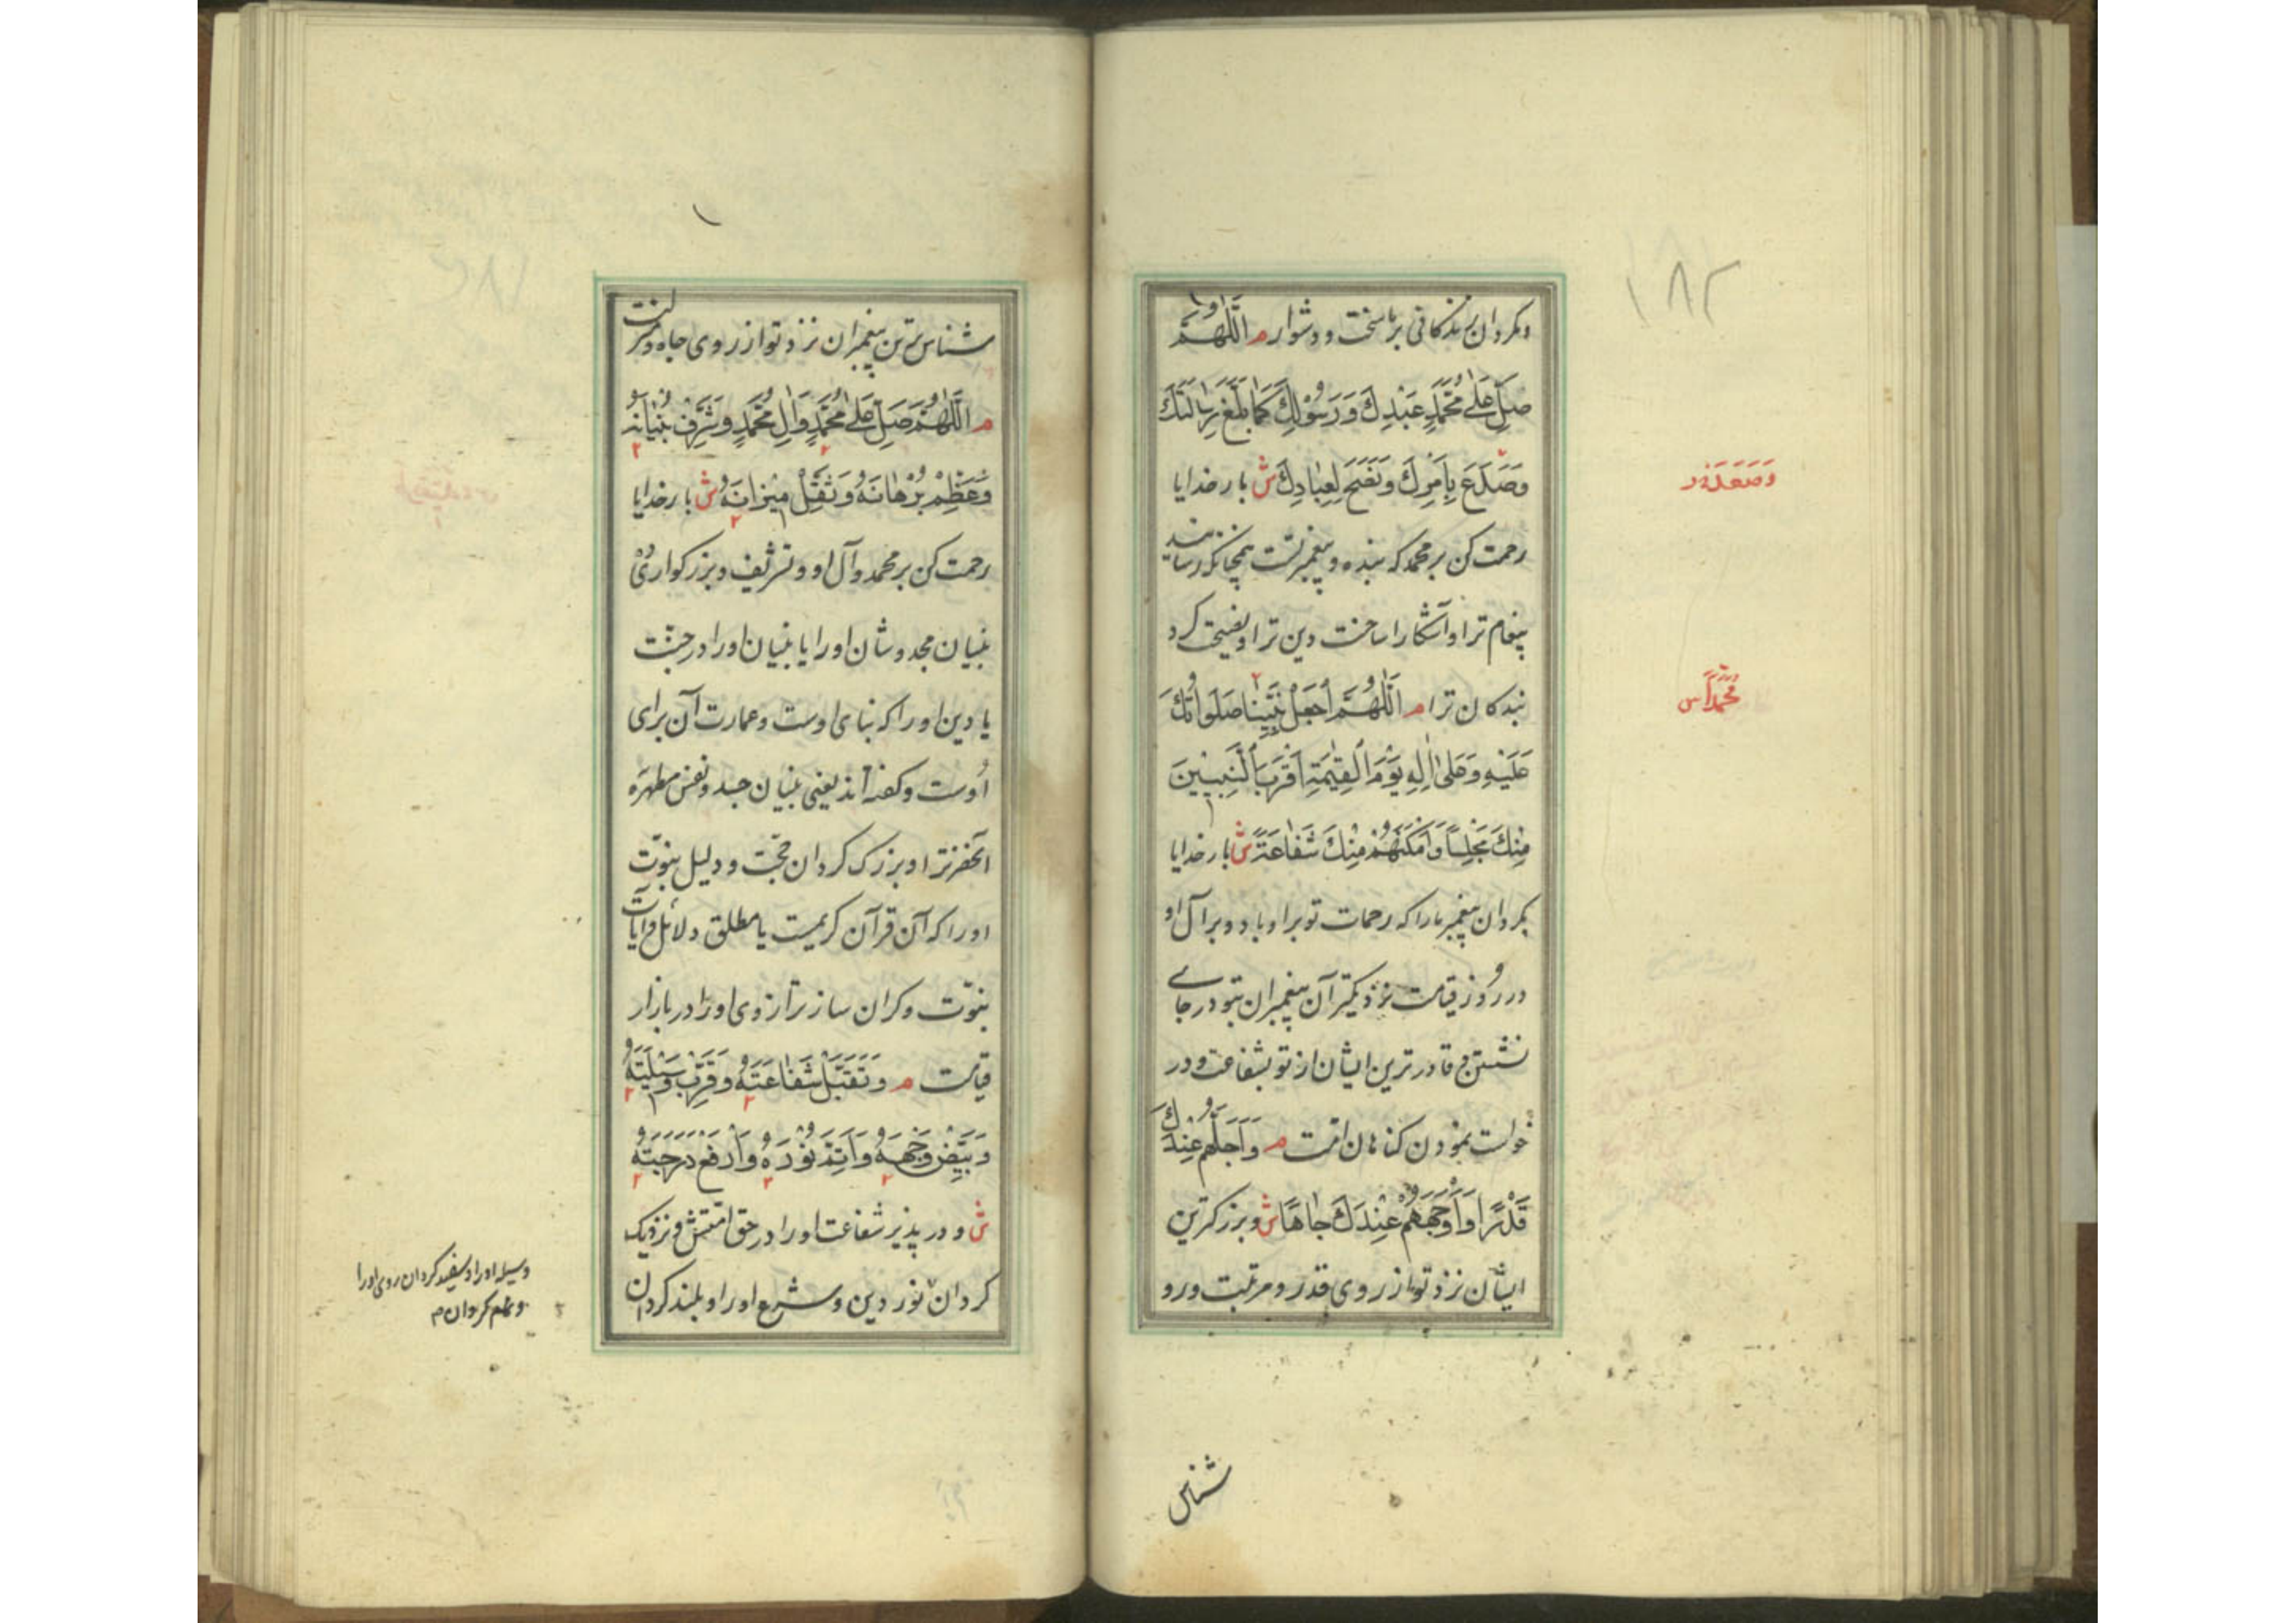 ۱۸۲
ومکردان زندکانی بر ما سخت و دشوار م اَللّٰهُمَّ
صَلِّ عَلٰی مُحَمَّدٍ عَبْدِكَ وَرَسُوْلِكَ كَمَا بَلَّغَ رِسَالَتَكَ
وَصَدَعَ بِاَمْرِكَ وَنَصَحَ لِعِبَادِكَ ش بار خدایا
رحمت کن بر محمد که بنده و پیغمبر تست همچنانکه رسانید
پیغام ترا و آشکارا ساخت دین ترا و نصیحت کرد
بندکان ترا م اَللّٰهُمَّ اجْعَلْ نَبِيَّنَا صَلَوَاتُكَ
عَلَيْهِ وَعَلٰی اٰلِهِ يَوْمَ الْقِيٰمَةِ اَقْرَبَ النَّبِيِّيْنَ
مِنْكَ مَجْلِسًا وَاَمْكَنَهُمْ مِنْكَ شَفَاعَةً ش بار خدایا
بکردان پیغمبر ما را که رحمات تو بر او باد و بر آل او
در روز قیامت نزدیکترین پیغمبران بتو در جای
نشستن و قادرترین ایشان از تو بشفاعت و در
خواست نمودن کناهان امت م وَاَجَلَّهُمْ عِنْدَكَ
قَدْرًا وَاَوْجَهَهُمْ عِنْدَكَ جَاهًا ش و بزرکترین
ایشان نزد تو از روی قدر و مرتبت و رو
شناس
مُحَمَّدًا س
شناس ترین پیغمبران نزد تو از روی جاه و منزلت
م اَللّٰهُمَّ صَلِّ عَلٰی مُحَمَّدٍ وَاٰلِ مُحَمَّدٍ وَشَرِّفْ بُنْيَانَهُ
وَعَظِّمْ بُرْهَانَهُ وَثَقِّلْ مِيْزَانَهُ ش بار خدایا
رحمت کن بر محمد و آل او و تشریف و بزرکواری
بنیان مجد و شان او را یا بنیان او را در جنّت
یا دین او را که بنای اوست و عمارت آن برای
اوست و کفته‌اند یعنی بنیان جسد و نفس مطهره
آنحضرت را و بزرک کردان حجت و دلیل نبوّت
او را که آن قرآن کریمست یا مطلق دلائل و آیات
نبوّت و کران ساز ترازوی او را در بازار
قیامت م وَتَقَبَّلْ شَفَاعَتَهُ وَقَرِّبْ وَسِيْلَتَهُ
وَبَيِّضْ وَجْهَهُ وَاَتِمَّ نُوْرَهُ وَارْفَعْ دَرَجَتَهُ
ش و در پذیر شفاعت او را در حق امتش و نزدیک
کردان نور دین و شرع او را و بلند کردان
وسیله او را و سفید کردان روی او را
و تمام کردان م